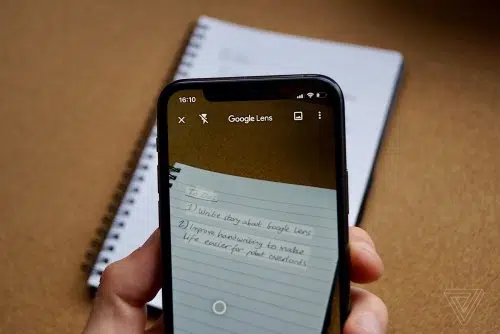 16:10
Google Lens
To do:
1) Write story about Google Lens
2) Improve handwriting to make
life easier for robot overlords